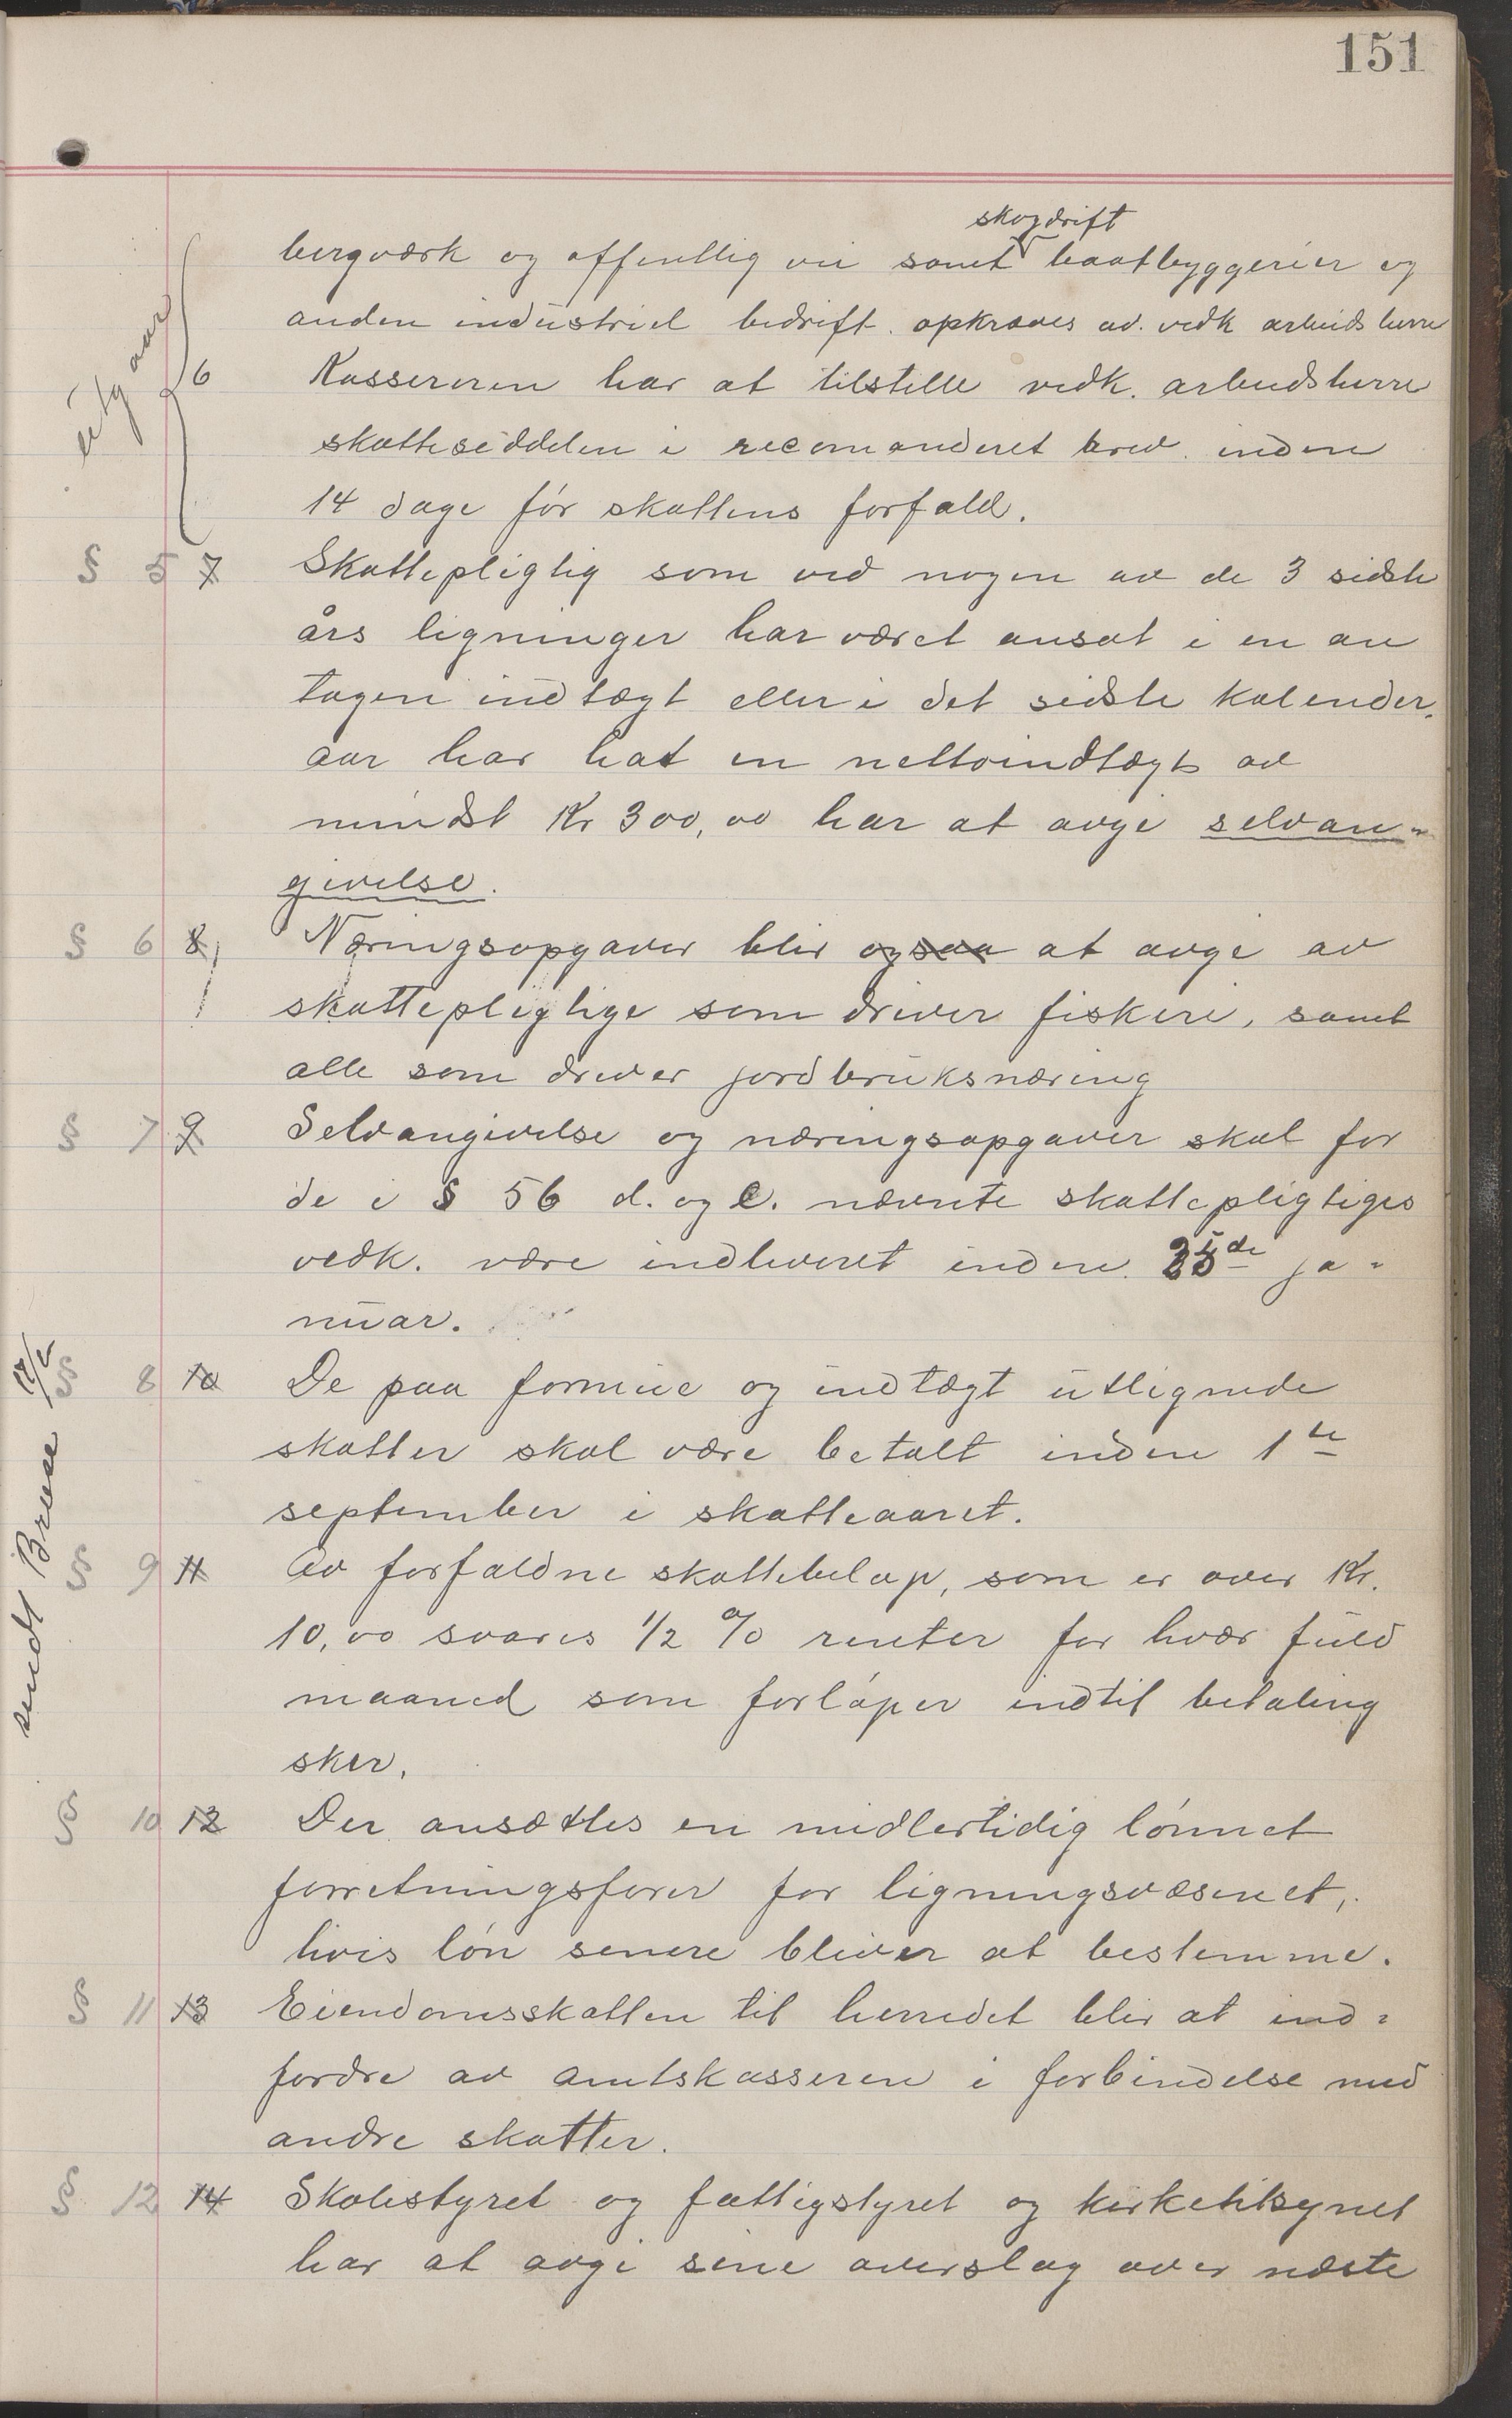 151
skogdrift
bergværk og offentlig vei samt baatbyggerier og
anden industriel bedrift opkræves av. vedk arbeidsherre
utgaar
6 Kassereren har at tilstille vedk. arbeidsherre
skatteseddelen i recomanderet brev inden
14 dage før skattens forfald.
§ 5 7 Skattepligtig som ved nogen av de 3 sidste
års ligninger har været ansat i en an
tagen indtægt eller i det sidste kalender,
aar har hat en nettoindtægt av
mindst Kr 300,00 har at avgi selvan-
givelse.
§ 6 8 Næringsopgaver blir ogsaa at avgi av
skattepligtige som driver fiskeri, samt
alle som driver jordbruksnæring
§ 7 9 Selvangivelse og næringsopgaver skal for
de i § 56 d. og e. nævnte skattepligtiges
vedk. være indleveret inden 25de ja-
nuar.
§ 8 10 De paa formue og indtægt utlignede
skatter skal være betalt inden 1te
september i skatteaaret.
§ 9 11 Av forfaldne skattebeløp, som er over Kr.
10,00 svares 1/2 % renter for hvær fuld
maaned som forløper indtil betaling
sker.
sendt
§ 10 12 Der ansættes en midlertidig lønnet
forretningsfører for ligningsvæsenet,
hvis løn senere bliver at bestemme.
§ 11 13 Eiendomsskatten til herredet blir at ind-
fordre av amtskasseren i forbindelse med
andre skatter.
§ 12 14 Skolestyret og fattigstyret og kirketilsynet
har at avgi sine overslag over næste